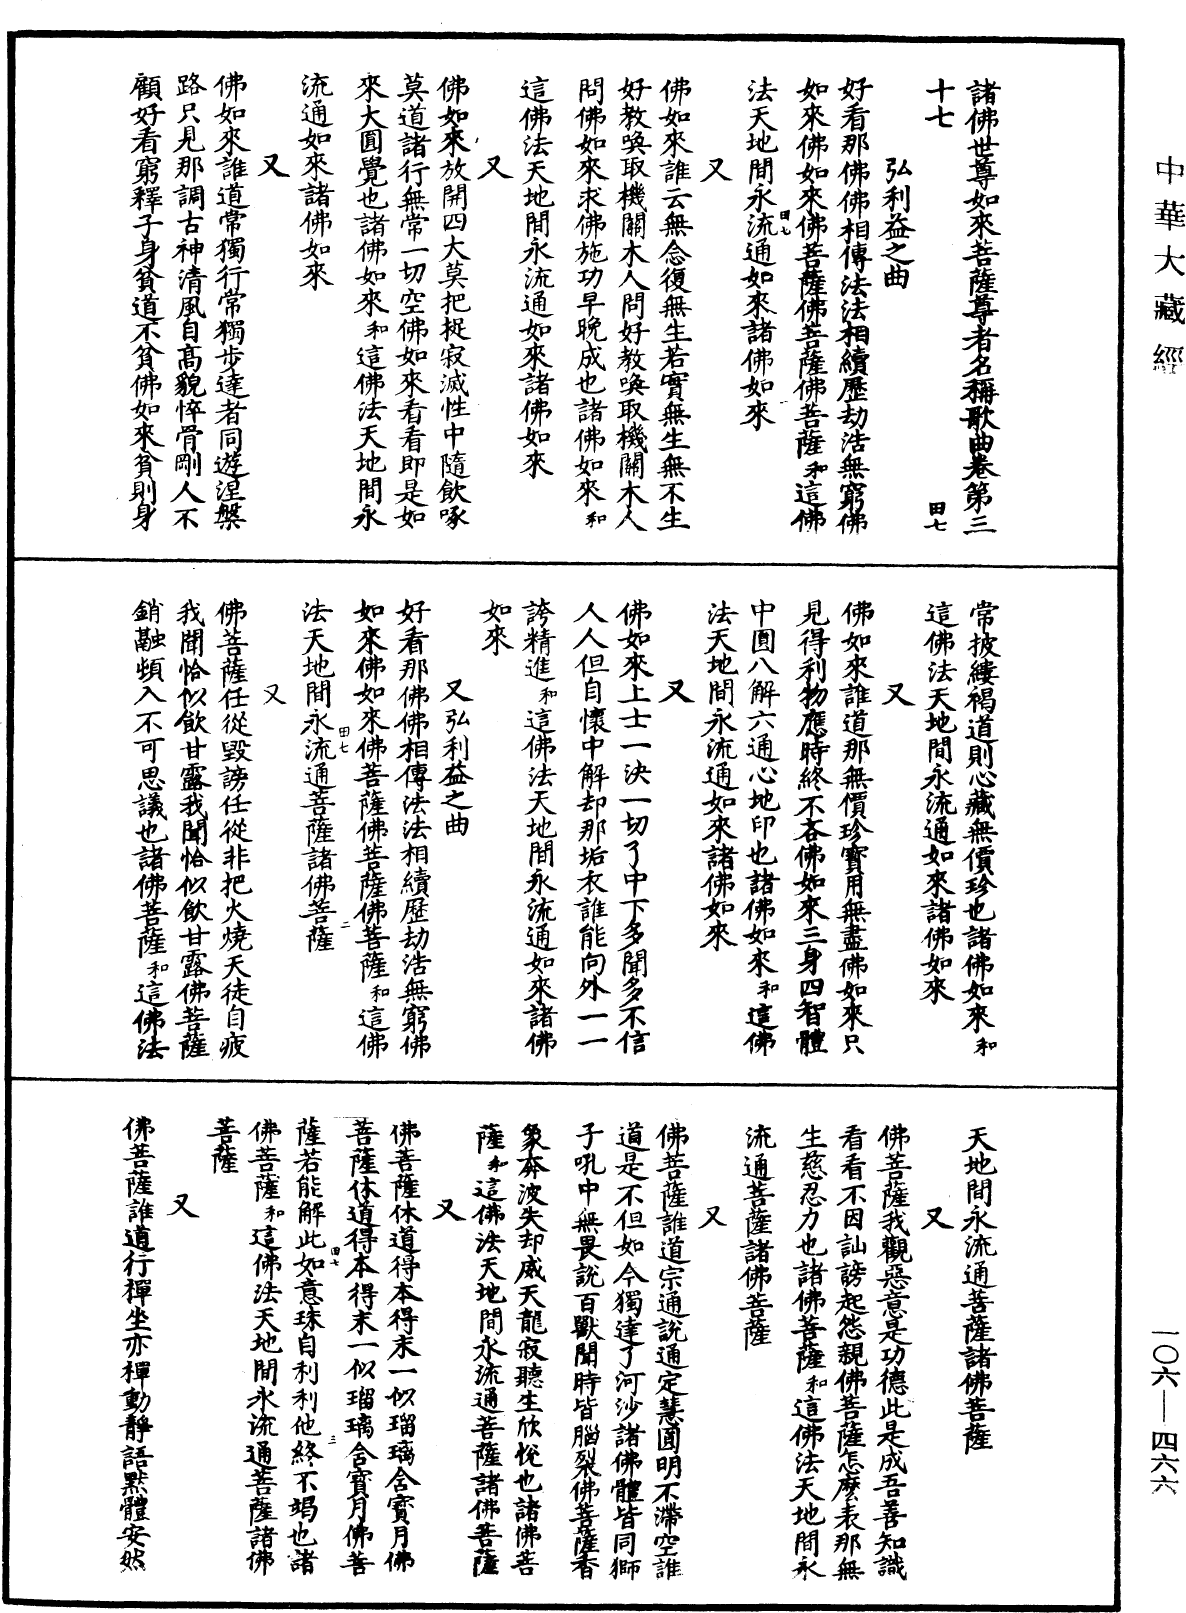 中華大藏經
諸佛世尊如來菩薩尊者名稱歌曲卷第三
十七　田七
弘利益之曲
好看那佛佛相傳法法相續歷劫浩無窮佛
如來佛如來佛菩薩佛菩薩佛菩薩和這佛
法天地間永流通如來諸佛如來
田七
又
佛如來誰云無念復無生若實無生無不生
好教喚取機關木人問好教喚取機關木人
問佛如來求佛施功早晚成也諸佛如來和
這佛法天地間永流通如來諸佛如來
又
佛如來放開四大莫把捉寂滅性中隨飲啄
莫道諸行無常一切空佛如來看看即是如
來大圓覺也諸佛如來和這佛法天地間永
流通如來諸佛如來
又
佛如來誰道常獨行常獨步達者同遊涅槃
路只見那調古神清風自高貌悴骨剛人不
顧好看窮釋子身貧道不貧佛如來貧則身
常披縷褐道則心藏無價珍也諸佛如來和
這佛法天地間永流通如來諸佛如來
又
佛如來誰道那無價珍寶用無盡佛如來只
見得利物應時終不吝佛如來三身四智體
中圓八解六通心地印也諸佛如來和這佛
法天地間永流通如來諸佛如來
又
佛如來上士一決一切了中下多聞多不信
人人但自懷中解却那垢衣誰能向外一一
誇精進和這佛法天地間永流通如來諸佛
如來
又弘利益之曲
好看那佛佛相傳法法相續歷劫浩無窮佛
如來佛如來佛菩薩佛菩薩佛菩薩和這佛
法天地間永流通菩薩諸佛菩薩
田七
二
又
佛菩薩任從毀謗任從非把火燒天徒自疲
我聞恰似飲甘露我聞恰似飲甘露佛菩薩
銷融頻入不可思議也諸佛菩薩和這佛法
天地間永流通菩薩諸佛菩薩
又
佛菩薩我觀惡意是功德此是成吾善知識
看看不因訕謗起怨親佛菩薩怎麽表那無
生慈忍力也諸佛菩薩和這佛法天地間永
流通菩薩諸佛菩薩
又
佛菩薩誰道宗通說通定慧圓明不滯空誰
道是不但如今獨達了河沙諸佛體皆同獅
子吼中無畏說百獸聞時皆腦裂佛菩薩香
象奔波失却威天龍寂聽生欣悅也諸佛菩
薩和這佛法天地間永流通菩薩諸佛菩薩
又
佛菩薩休道得本得末一似瑠璃含寶月佛
菩薩休道得本得末一似瑠璃含寶月佛菩
薩若能解此如意珠自利利他終不竭也諸
佛菩薩和這佛法天地間永流通菩薩諸佛
菩薩
田七
三
又
佛菩薩誰道行禪坐亦禪動靜語默體安然
一〇六—四六六